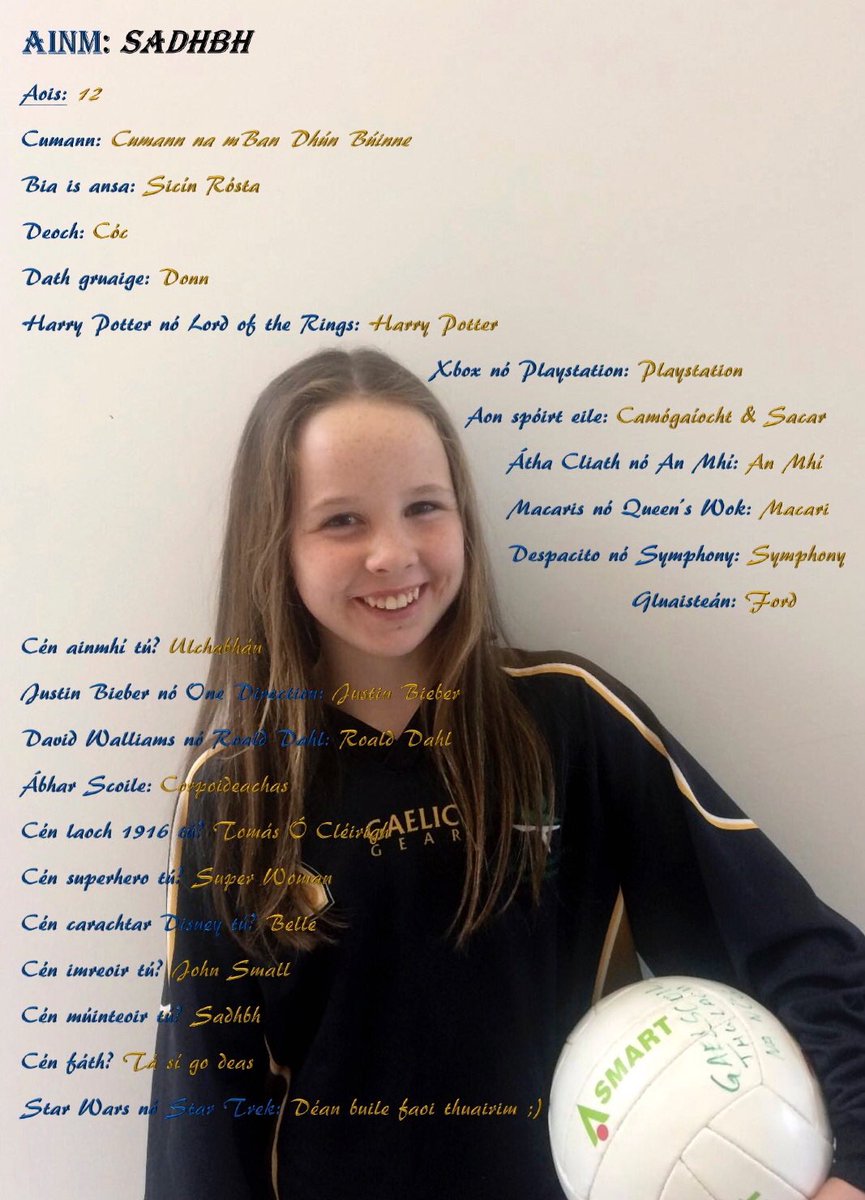 AINM: SADHBH
Aois: 12
Cumann: Cumann na mBan Dhún Búinne
Bia is ansa: Sicín Rósta
Deoch: Cóc
Dath gruaige: Donn
Harry Potter nó Lord of the Rings: Harry Potter
Xbox nó Playstation: Playstation
Aon spóirt eile: Camógaíocht & Sacar
Átha Cliath nó An Mhí: An Mhí
Macaris nó Queen's Wok: Macari
Despacito nó Symphony: Symphony
Gluaisteán: Ford
Cén ainmhí tú? Ulchabhán
Justin Bieber nó One Direction: Justin Bieber
David Walliams nó Roald Dahl: Roald Dahl
Ábhar Scoile: Corpoideachas
Cén laoch 1916 tú? Tomás Ó Cléirigh
GAELIC
GEAR
Cén superhero tú? Super Woman
Cén carachtar Disney tú? Belle
Cén imreoir tú? John Small
Cén múinteoir tú? Sadhbh
Cén fáth? Tá sí go deas
Star Wars nó Star Trek: Déan buile faoi thuairim ;)
SMART
GAELSCOIL
THULACH